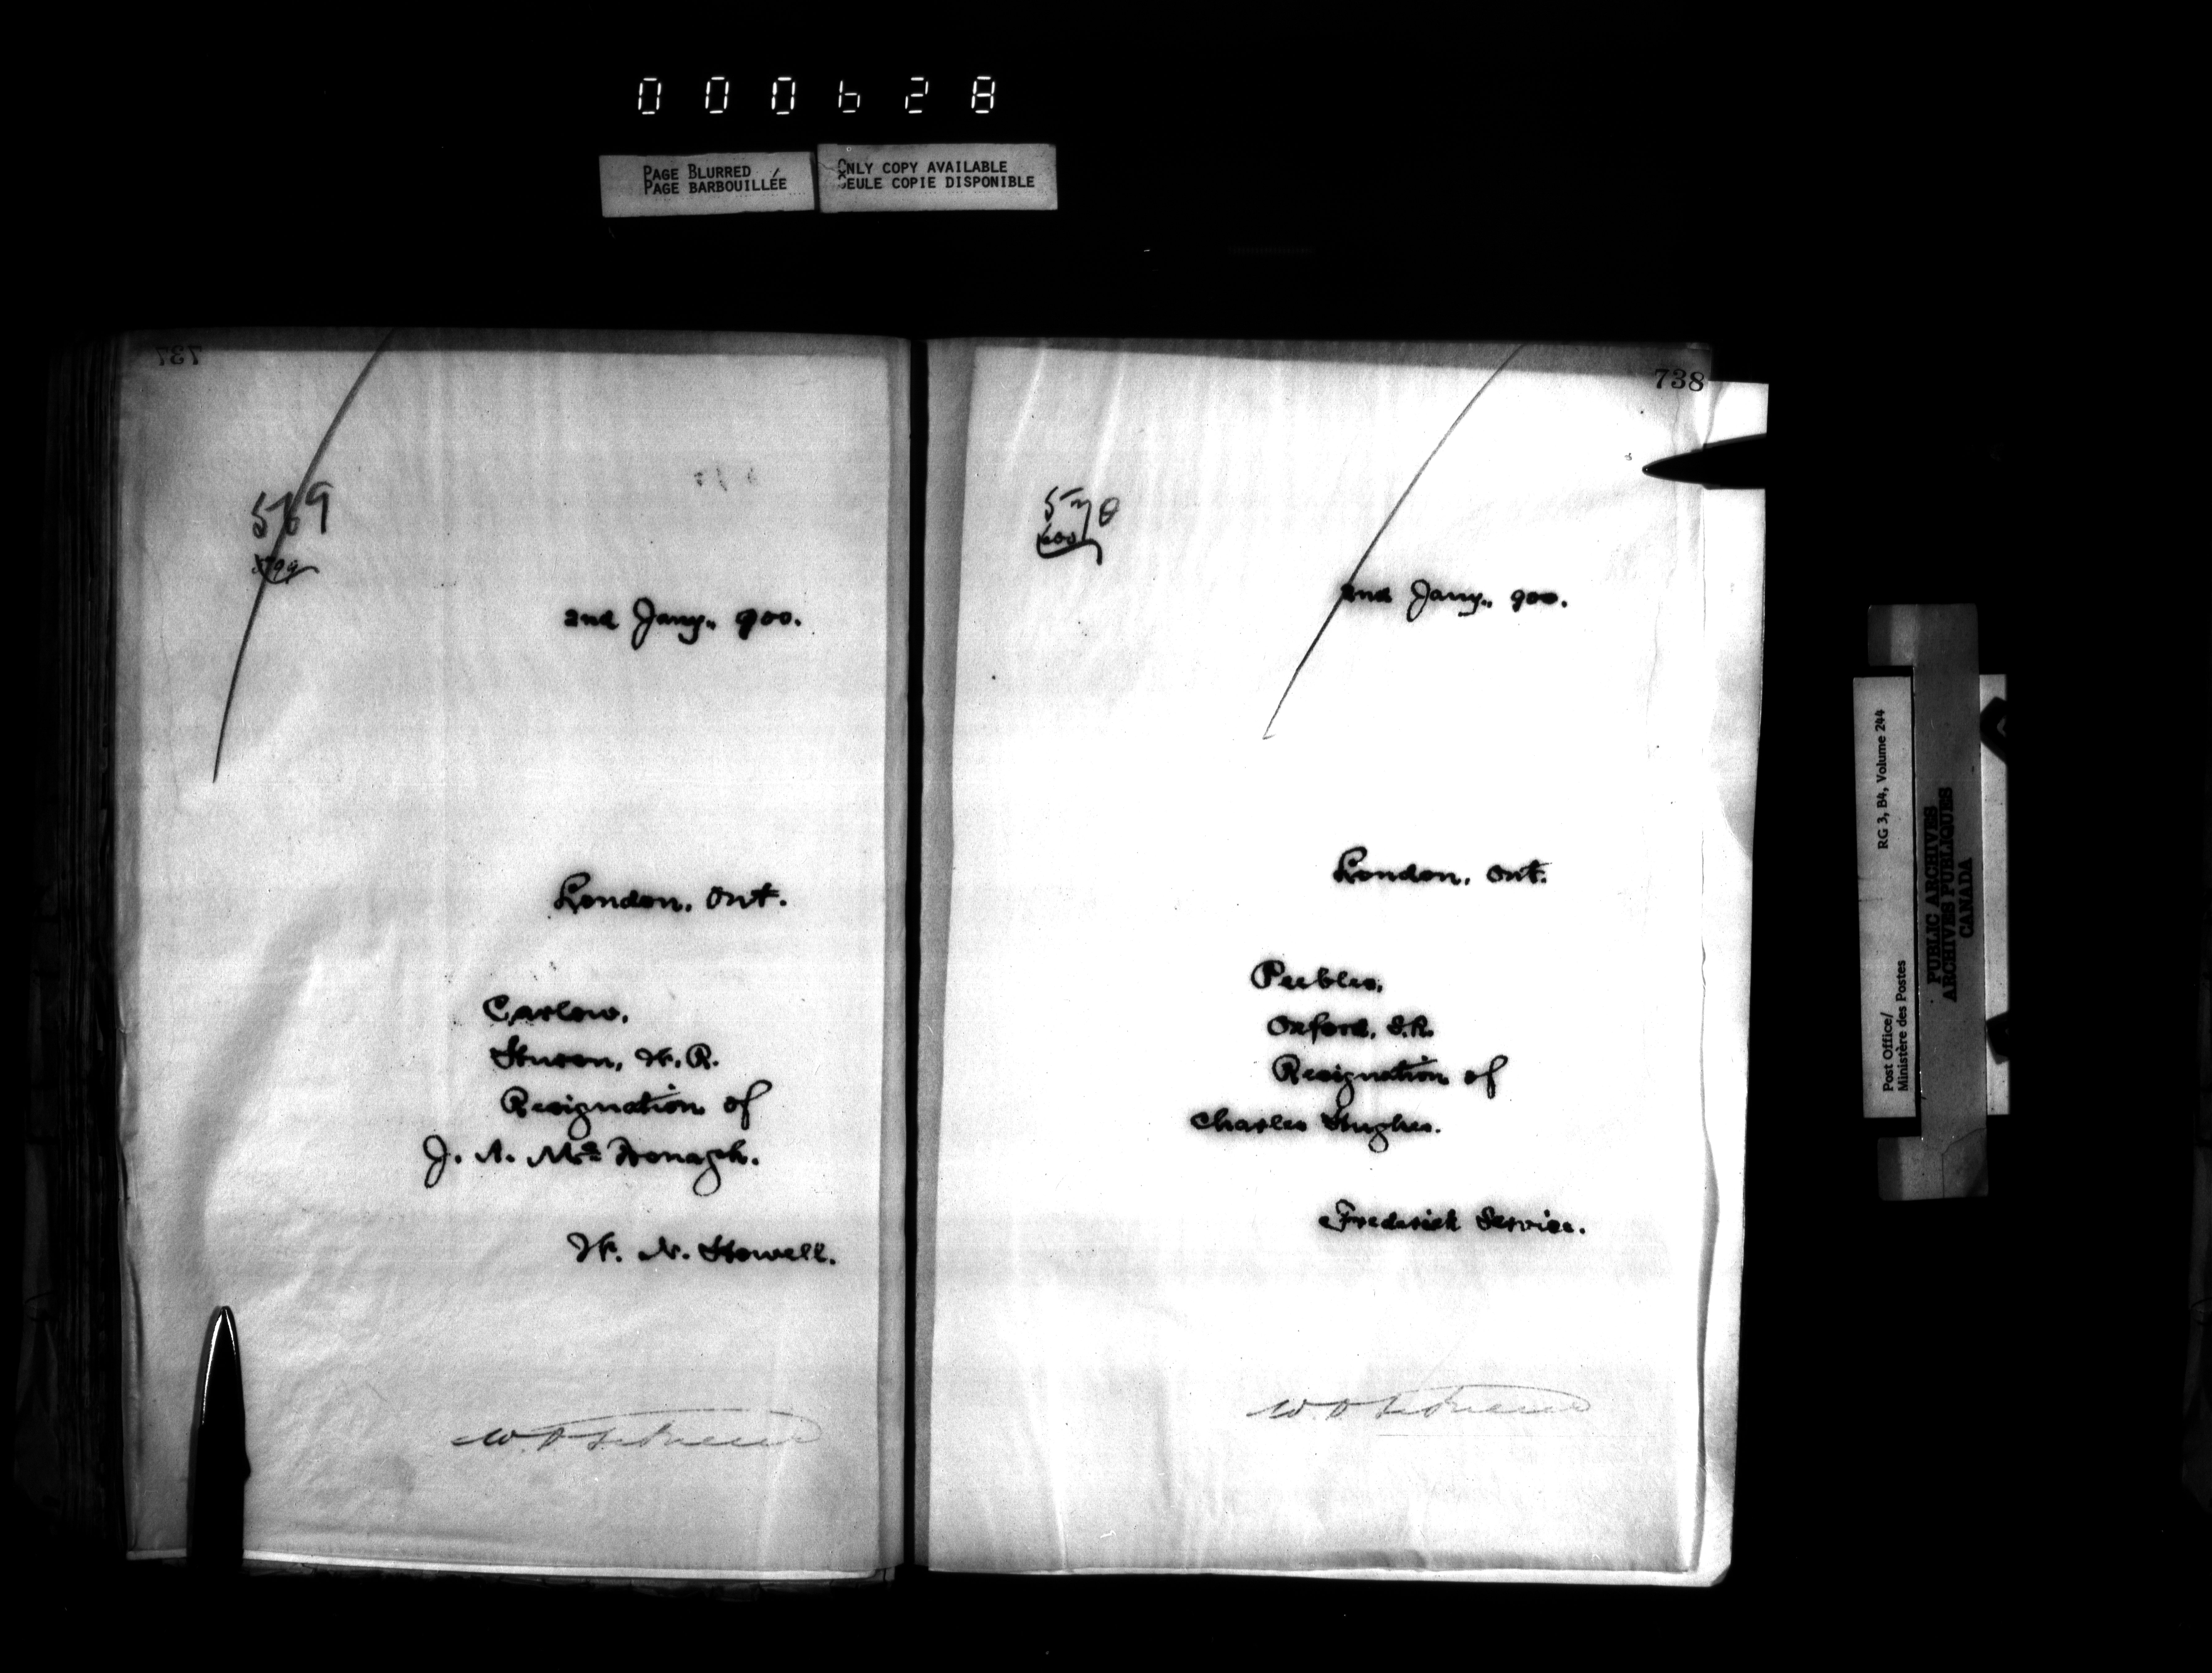 000628
PAGE BLURRED
PAGE BARBOUILLÉE
ONLY COPY AVAILABLE
SEULE COPIE DISPONIBLE
737
569
599
2nd Jany., 900.
London, Ont.
Carlow,
Huron, W.R.
Resignation of
J. A. McDonagh.
W. N. Howell.
738
570
600
2nd Jany., 900.
London, Ont.
Peebles,
Oxford, S.R.
Resignation of
Charles Hughes.
Frederick Service.
RG 3, B4, Volume 244
Post Office/
Ministère des Postes
PUBLIC ARCHIVES
ARCHIVES PUBLIQUES
CANADA